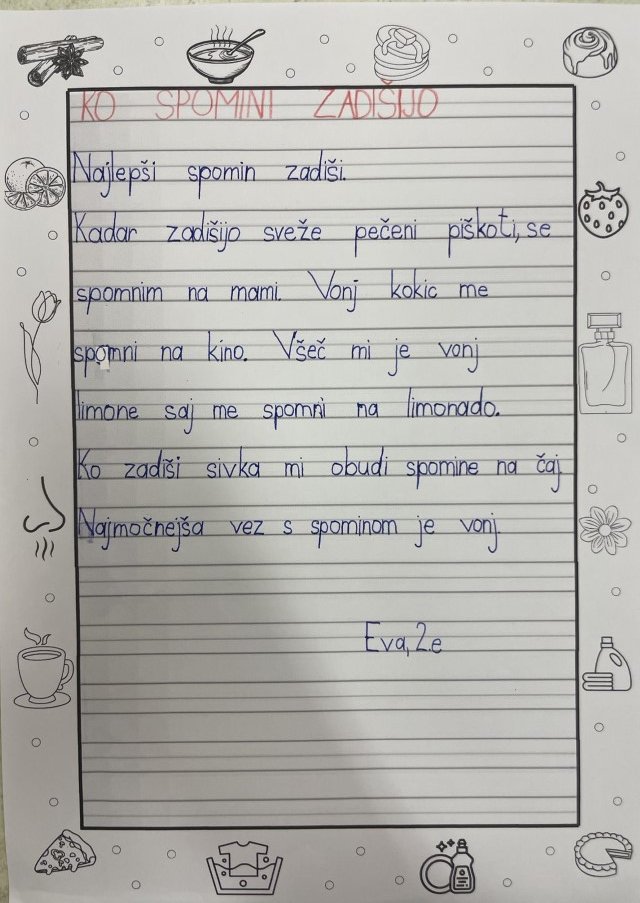 KO SPOMINI ZADIŠIJO
Najlepši spomin zadiši.
Kadar zadišijo sveže pečeni piškoti, se
spomnim na mami. Vonj kokic me
spomni na kino. Všeč mi je vonj
limone saj me spomni na limonado.
Ko zadiši sivka mi obudi spomine na čaj.
Najmočnejša vez s spominom je vonj.
Eva, 2.e